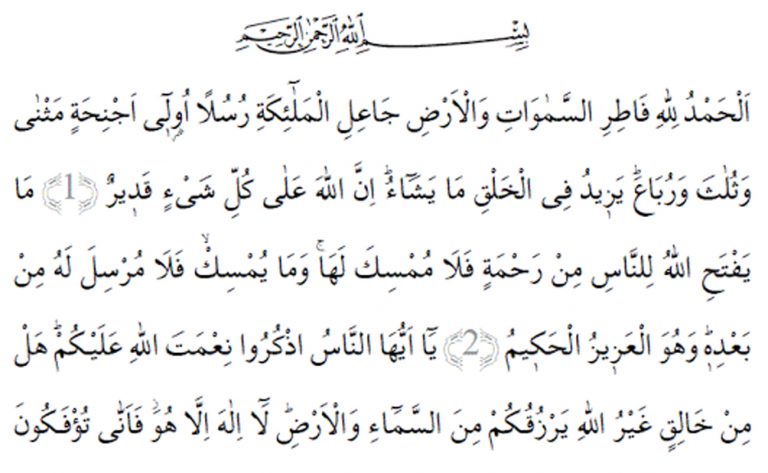 بِسْمِ اللهِ الرَّحْمٰنِ الرَّحِيمِ
اَلْحَمْدُ لِلّٰهِ فَاطِرِ السَّمٰوَاتِ وَالْاَرْضِ جَاعِلِ الْمَلٰٓئِكَةِ رُسُلًا اُو۬لٰٓى اَجْنِحَةٍ مَثْنٰى
وَثُلٰثَ وَرُبَاعَۜ يَز۪يدُ فِى الْخَلْقِ مَا يَشَٓاءُۜ اِنَّ اللهَ عَلٰى كُلِّ شَىْءٍ قَد۪يرٌ ﴿1﴾ مَا
يَفْتَحِ اللهُ لِلنَّاسِ مِنْ رَحْمَةٍ فَلَا مُمْسِكَ لَهَاۚ وَمَا يُمْسِكْۙ فَلَا مُرْسِلَ لَهُ مِنْ
بَعْدِه۪ۜ وَهُوَ الْعَز۪يزُ الْحَك۪يمُ ﴿2﴾ يَٓا اَيُّهَا النَّاسُ اذْكُرُوا نِعْمَتَ اللهِ عَلَيْكُمْۜ هَلْ
مِنْ خَالِقٍ غَيْرُ اللهِ يَرْزُقُكُمْ مِنَ السَّمَٓاءِ وَالْاَرْضِۜ لَٓا اِلٰهَ اِلَّا هُوَۘ فَاَنّٰى تُؤْفَكُونَ